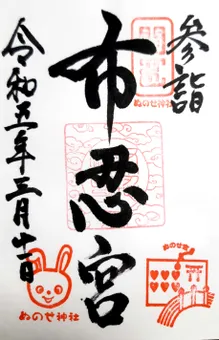 参詣
布忍宮
令和五年三月十一日
ぬのせ神社
ぬのせ宮
ぬのせ神社